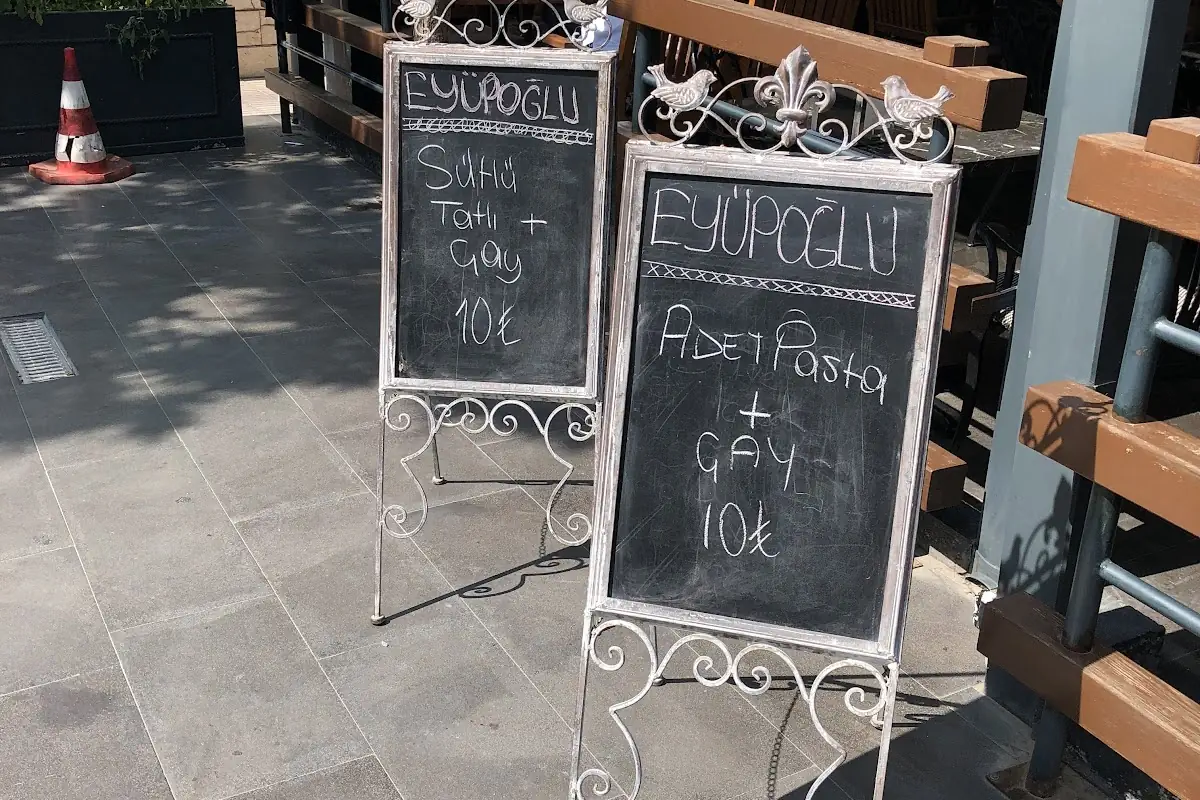 EYÜPOĞLU
Sütlü
Tatlı +
Çay
10₺
EYÜPOĞLU
ADET Pasta
+
ÇAY
10₺